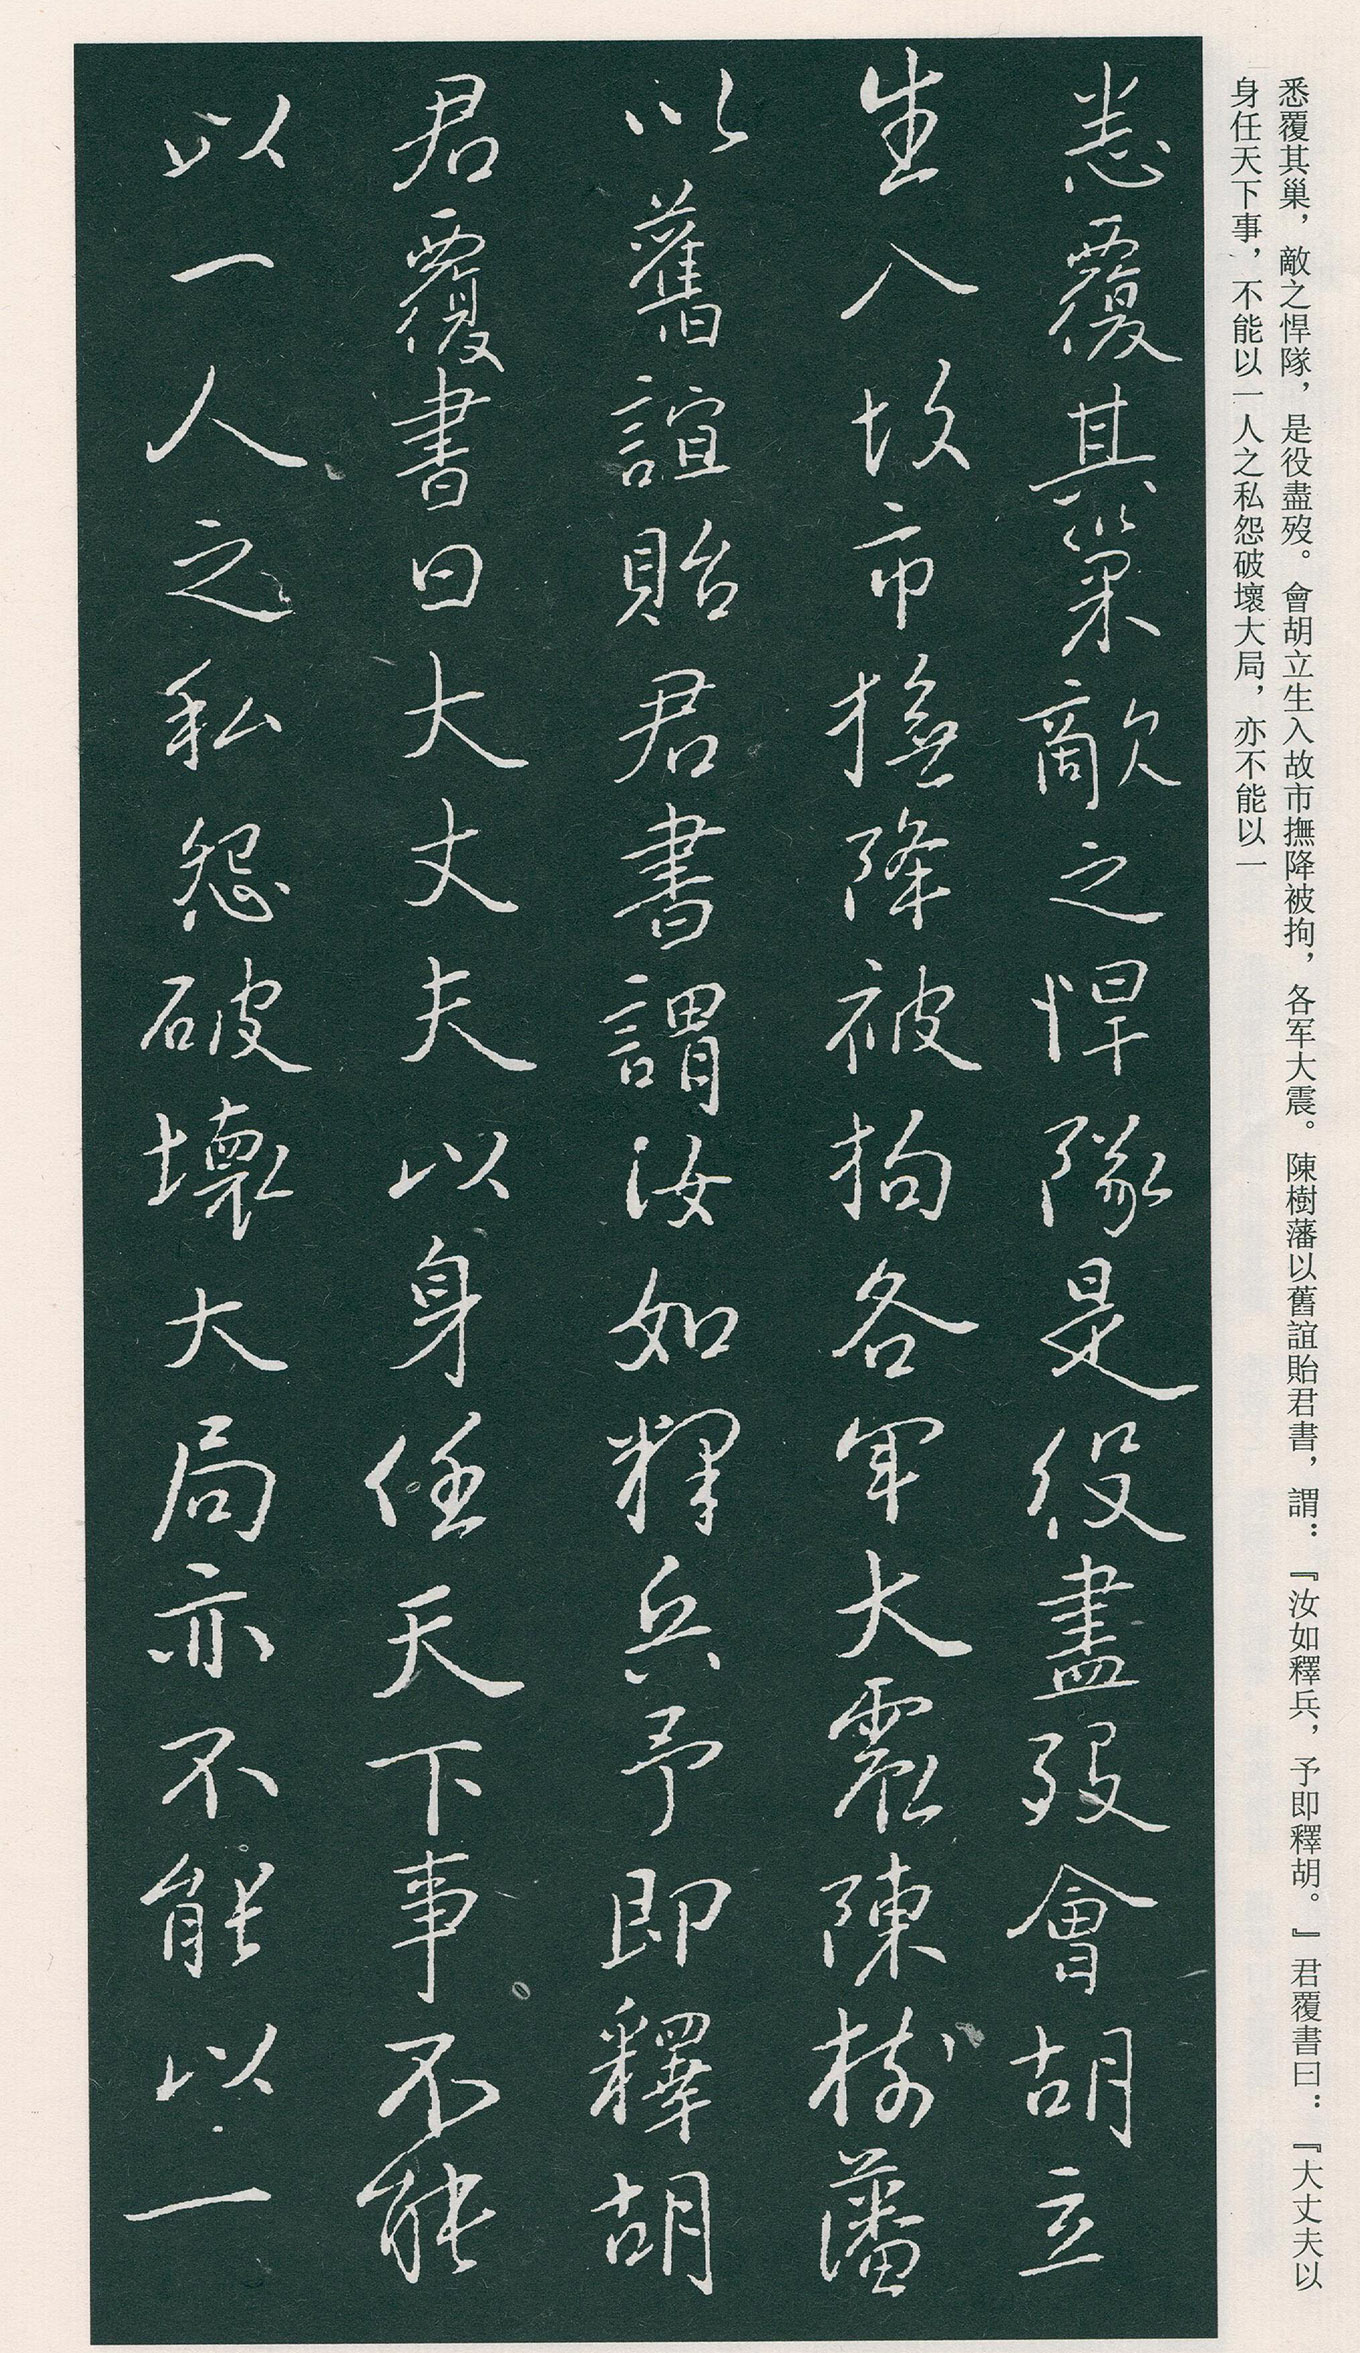 悉覆其巢，敵之悍隊，是役盡歿。會胡立生入故市撫降被拘，各军大震。陳樹藩以舊誼貽君書，謂：『汝如釋兵，予即釋胡。』君覆書曰：『大丈夫以
身任天下事，不能以一人之私怨破壞大局，亦不能以一
悉覆其巢敵之悍隊是役盡歿會胡立
生入故市撫降被拘各军大震陳樹藩
以舊誼貽君書謂汝如釋兵予即釋胡
君覆書曰大丈夫以身任天下事不能
以一人之私怨破壞大局亦不能以一